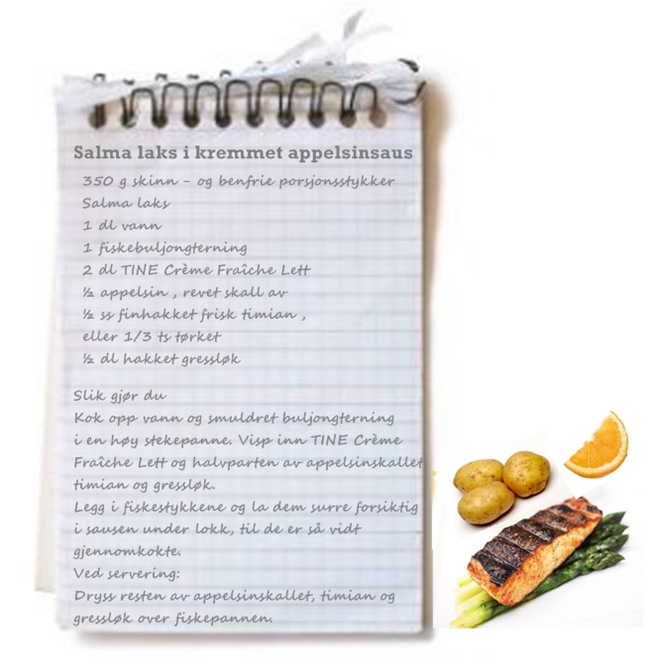 Salma laks i kremmet appelsinsaus
350 g skinn - og benfrie porsjonsstykker
Salma laks
1 dl vann
1 fiskebuljongterning
2 dl TINE Crème Fraîche Lett
½ appelsin , revet skall av
½ ss finhakket frisk timian ,
eller 1/3 ts tørket
½ dl hakket gressløk
Slik gjør du
Kok opp vann og smuldret buljongterning
i en høy stekepanne. Visp inn TINE Crème
Fraîche Lett og halvparten av appelsinskallet
timian og gressløk.
Legg i fiskestykkene og la dem surre forsiktig
i sausen under lokk, til de er så vidt
gjennomkokte.
Ved servering:
Dryss resten av appelsinskallet, timian og
gressløk over fiskepannen.